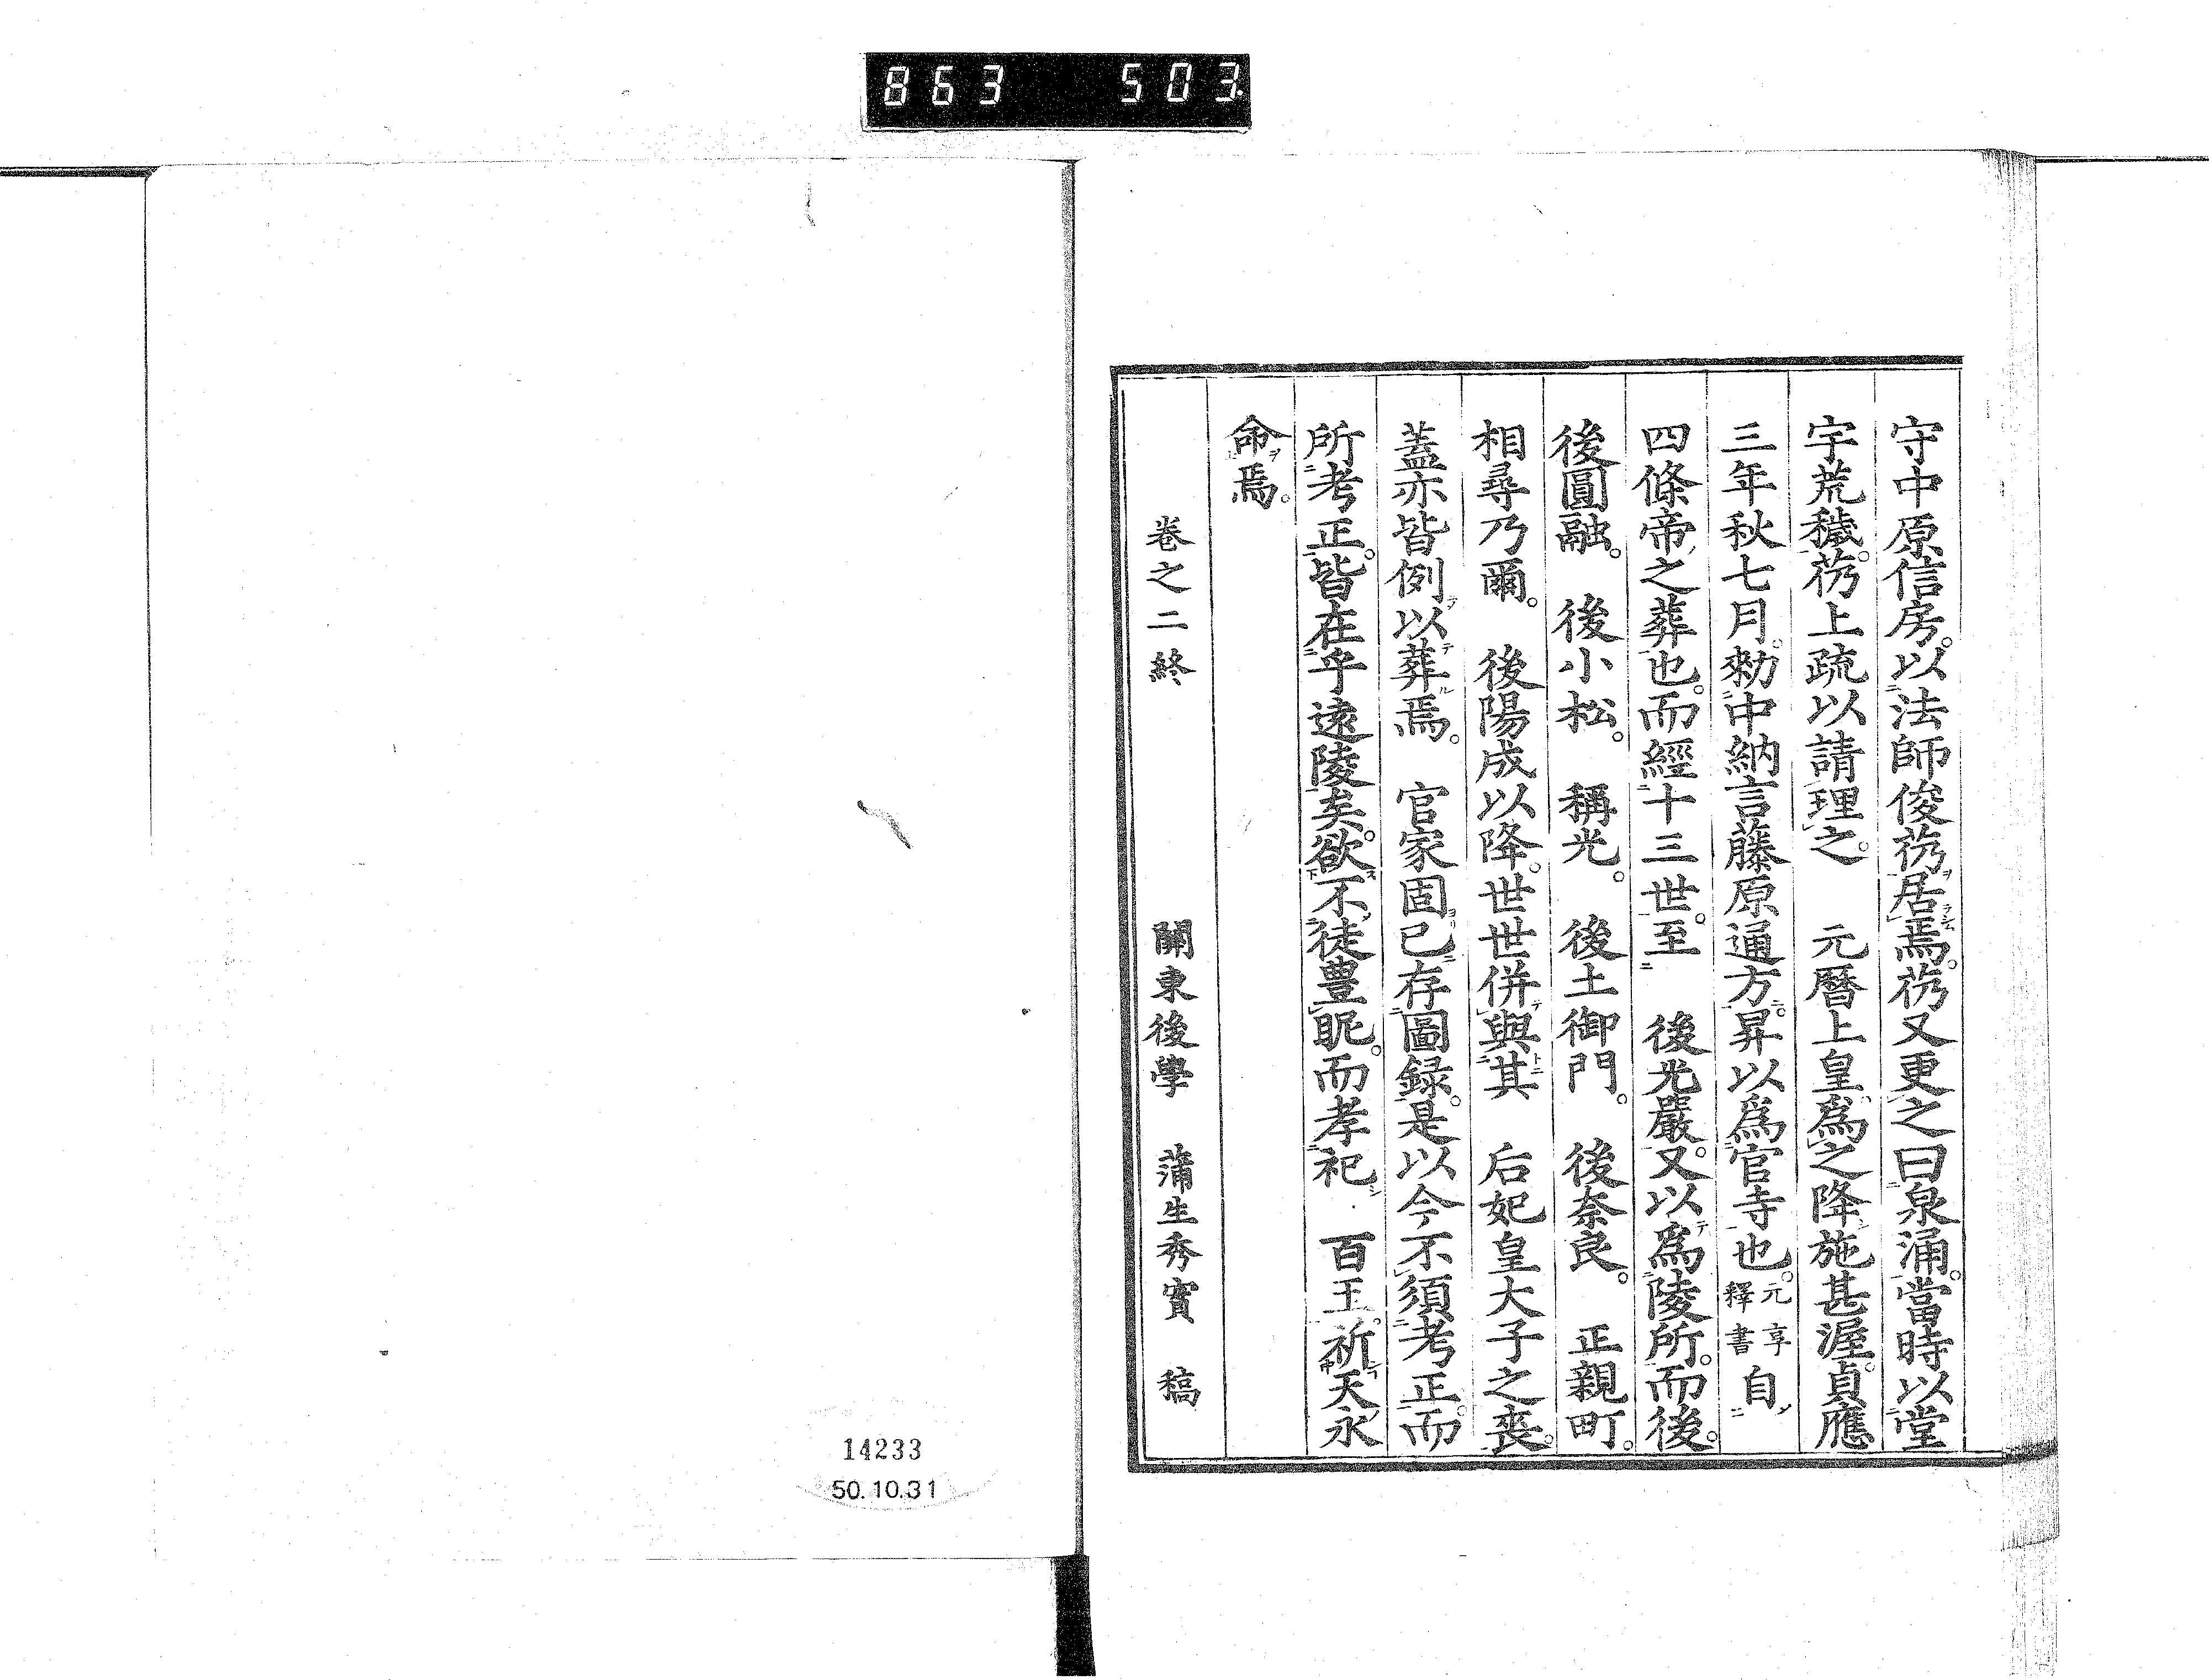 863 503
守中原信房。以法師俊芿居焉。芿又更之曰泉涌。當時以堂
宇荒穢。芿上疏以請理之。 元曆上皇爲之降施甚渥。貞應
三年秋七月。勑中納言藤原通方。昇以爲官寺也。元亨釋書自
四條帝之葬也。而經十三世。至 後光嚴。又以爲陵所。而後。
後圓融。 後小松。 稱光。 後土御門。 後奈良。 正親町。
相尋乃爾。 後陽成以降。世世併與其 后妃皇大子之喪。
蓋亦皆例以葬焉。 官家固已存圖録。是以今不須考正。而
所考正。皆在乎遠陵矣。欲不徒豊昵。而孝祀 百王。祈天永
命焉。
卷之二終 關東後學 蒲生秀實 稿
14233
50.10.31